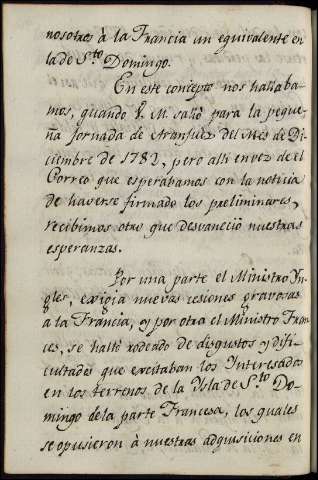 nosotros à la Francia un equivalente en
la de S.to Domingo.
En este concepto nos hallaba-
mos, quando S. M. salió para la peque-
ña Jornada de Aranjuez del Mes de Di-
ciembre de 1782, pero alli en vez de el
Correo que esperàbamos con la noticia
de haverse firmado los preliminares,
recibimos otro que desvaneciò nuestras
esperanzas.
Por una parte el Ministro Yn-
gles, exigia nuevas cesiones gravosas
à la Francia, y por otra el Ministro Fran-
ces, se hallò rodeado de disgustos y difi-
cultades que excitaban los Interesados
en los terrenos de la Ysla de S.to Do-
mingo de la parte Francesa, los quales
se opusieron à nuestras adquisiciones en